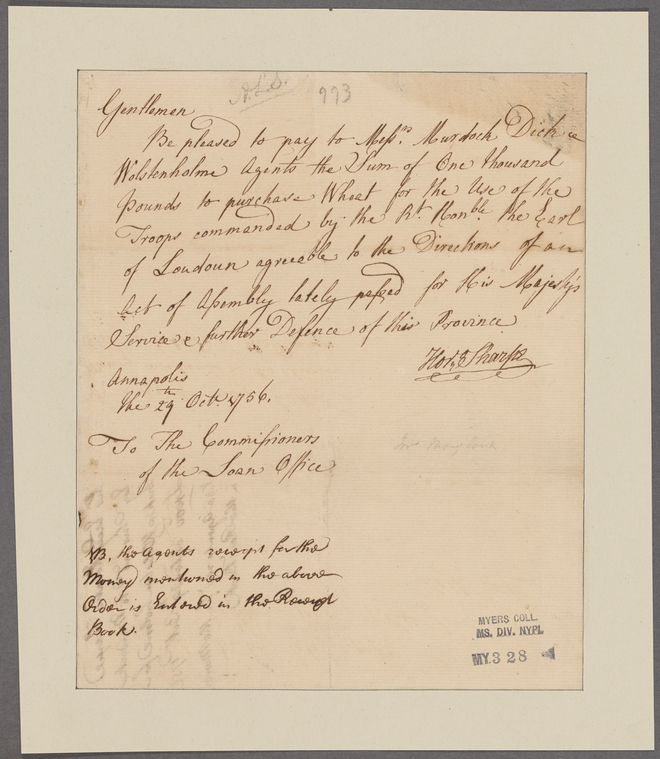 A.L.S. 993
Gentlemen
Be pleased to pay to Messrs. Murdock Dick &
Wolstenholme Agents the Sum of One thousand
Pounds to purchase Wheat for the Use of the
Troops commanded by the Rt. Honble. the Earl
of Loudoun agreeable to the Directions of an
Act of Assembly lately passed for His Majesty's
Service & further Defence of this Province
Horo. Sharpe
Annapolis
the 29th Octr. 1756.
To The Commissioners
of the Loan Office
NB. the Agents receipt for the
Money mentioned in the above
Order is Entered in the Receipt
Book.
MYERS COLL.
MS. DIV. NYPL
MY 3 28